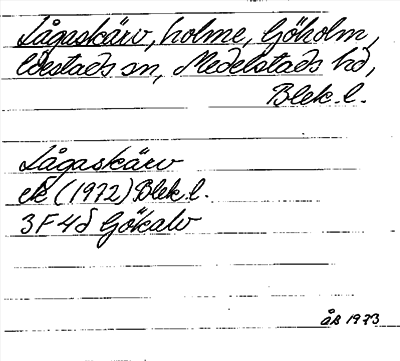 Lågaskärv, holme, Gökolm,
Edestads sn, Medelstads hd,
Blek. l.
Lågaskärv
ek (1972) Blek. l.
3F4d Gökalv
åB 1973